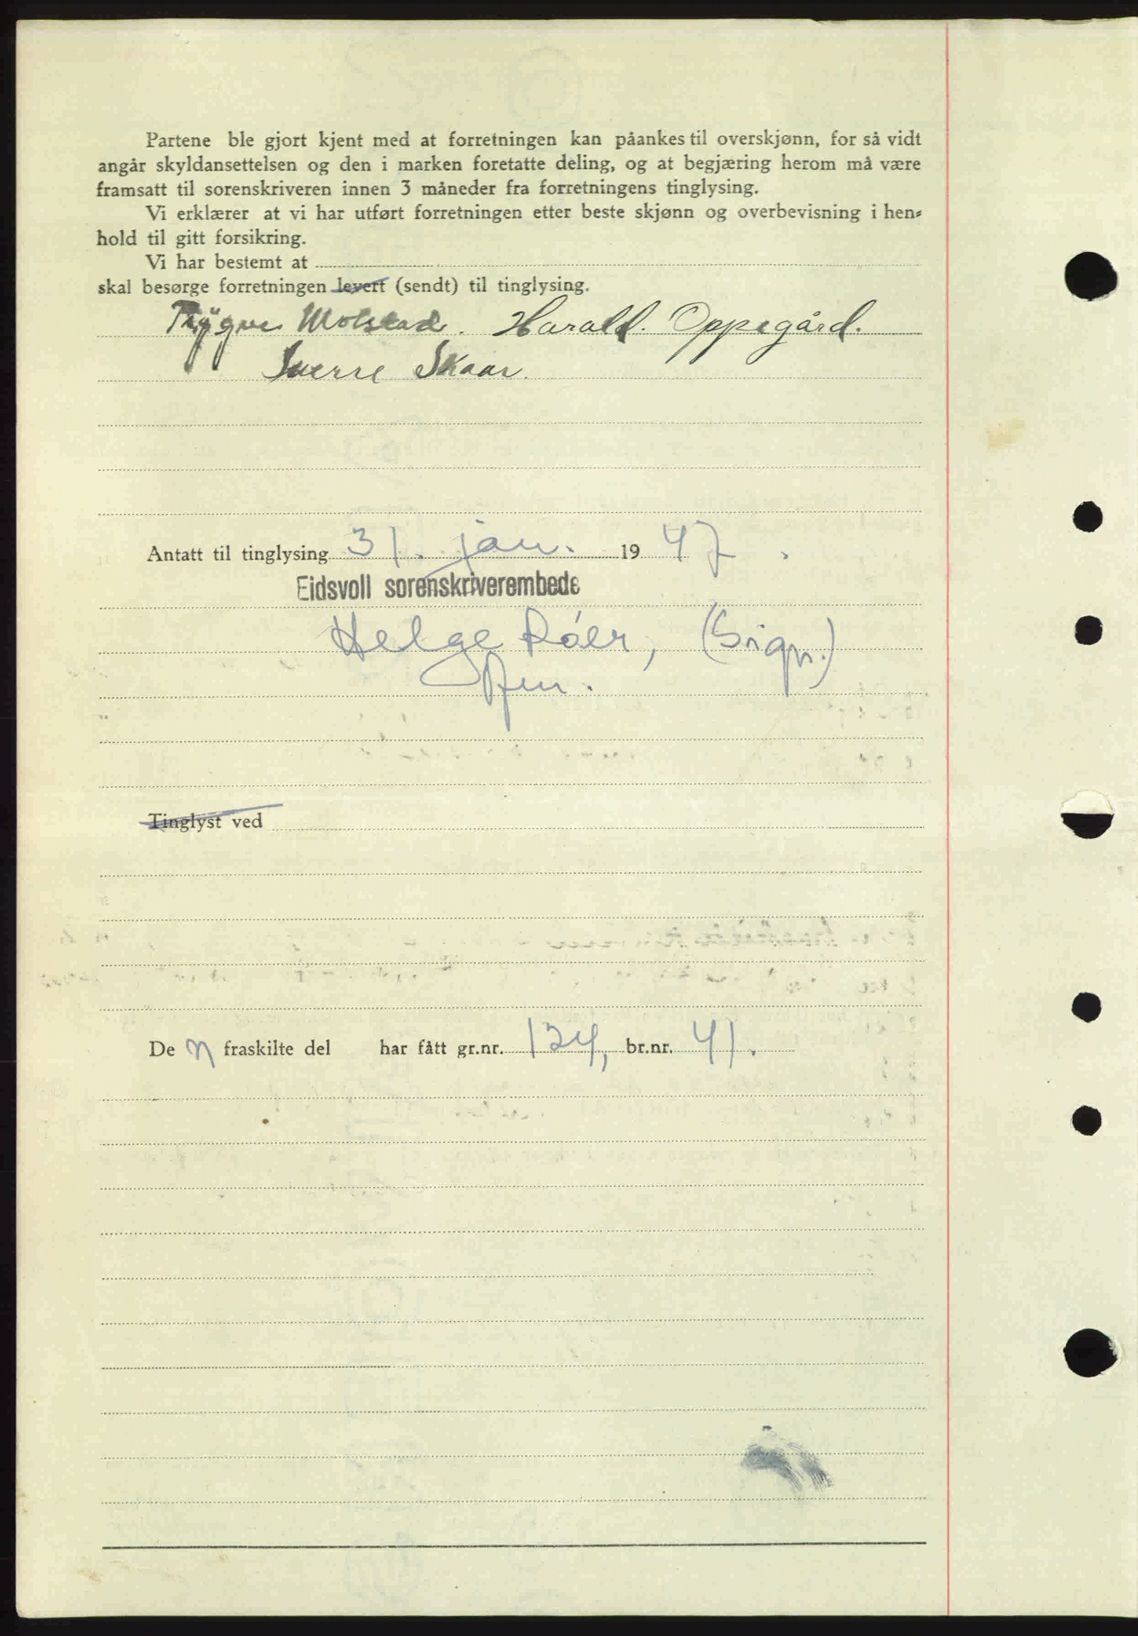 Partene ble gjort kjent med at forretningen kan påankes til overskjønn, for så vidt
angår skyldansettelsen og den i marken foretatte deling, og at begjæring herom må være
framsatt til sorenskriveren innen 3 måneder fra forretningens tinglysing.
Vi erklærer at vi har utført forretningen etter beste skjønn og overbevisning i hen-
hold til gitt forsikring.
Vi har bestemt at
skal besørge forretningen levert (sendt) til tinglysing.
Trygve Molstad. Harald. Oppegård.
Sverre Skaar.
Antatt til tinglysing 31. jan. 1947.
Eidsvoll sorenskriverembede
Helge Róer, (Sign.)
Tinglyst ved
De n fraskilte del har fått gr.nr. 134, br.nr. 41.